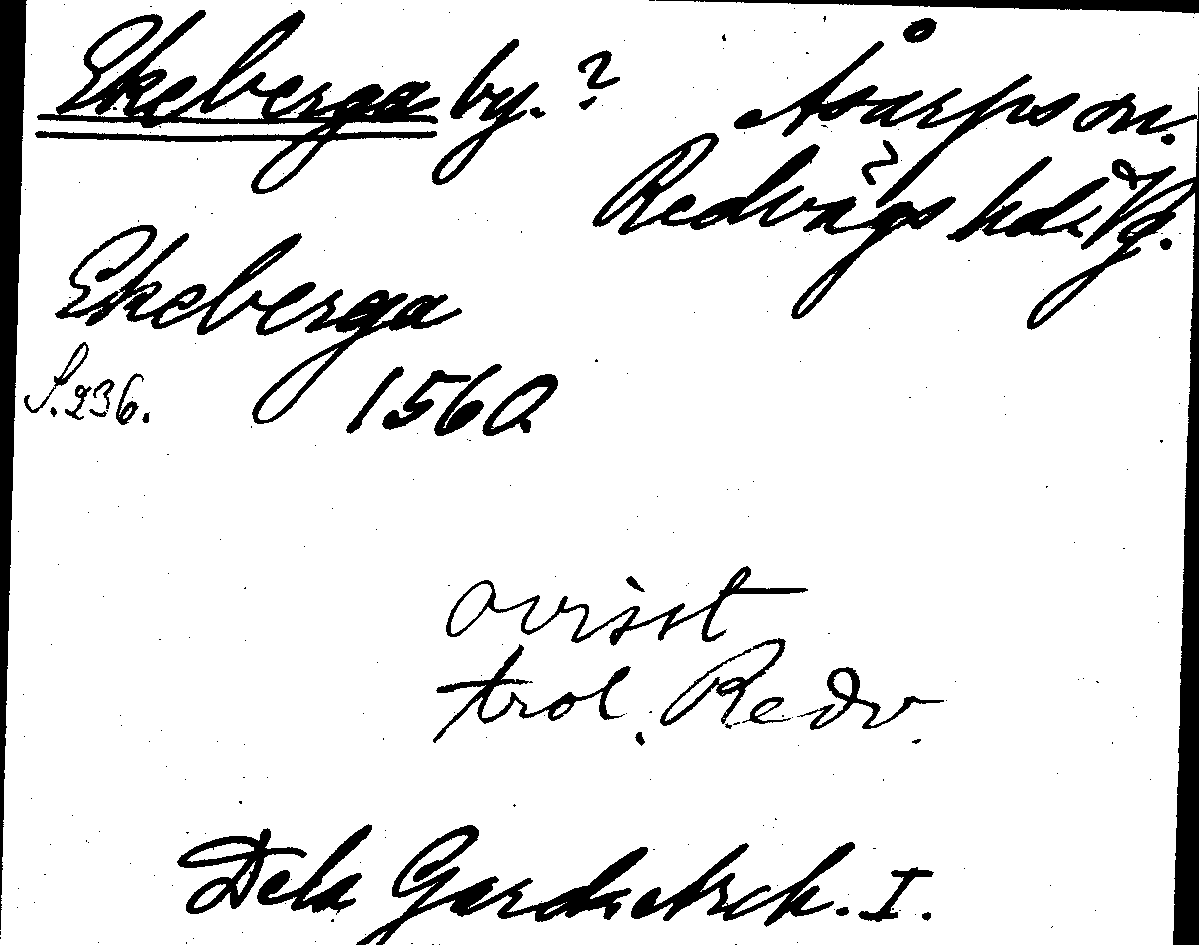 Ekeberga by. ? Åsarps sn.
Redvägs hd. Vg.
Ekeberga
S. 236. 1560
ovisst
trol. Redv.
Dela Gard. Arch. I.